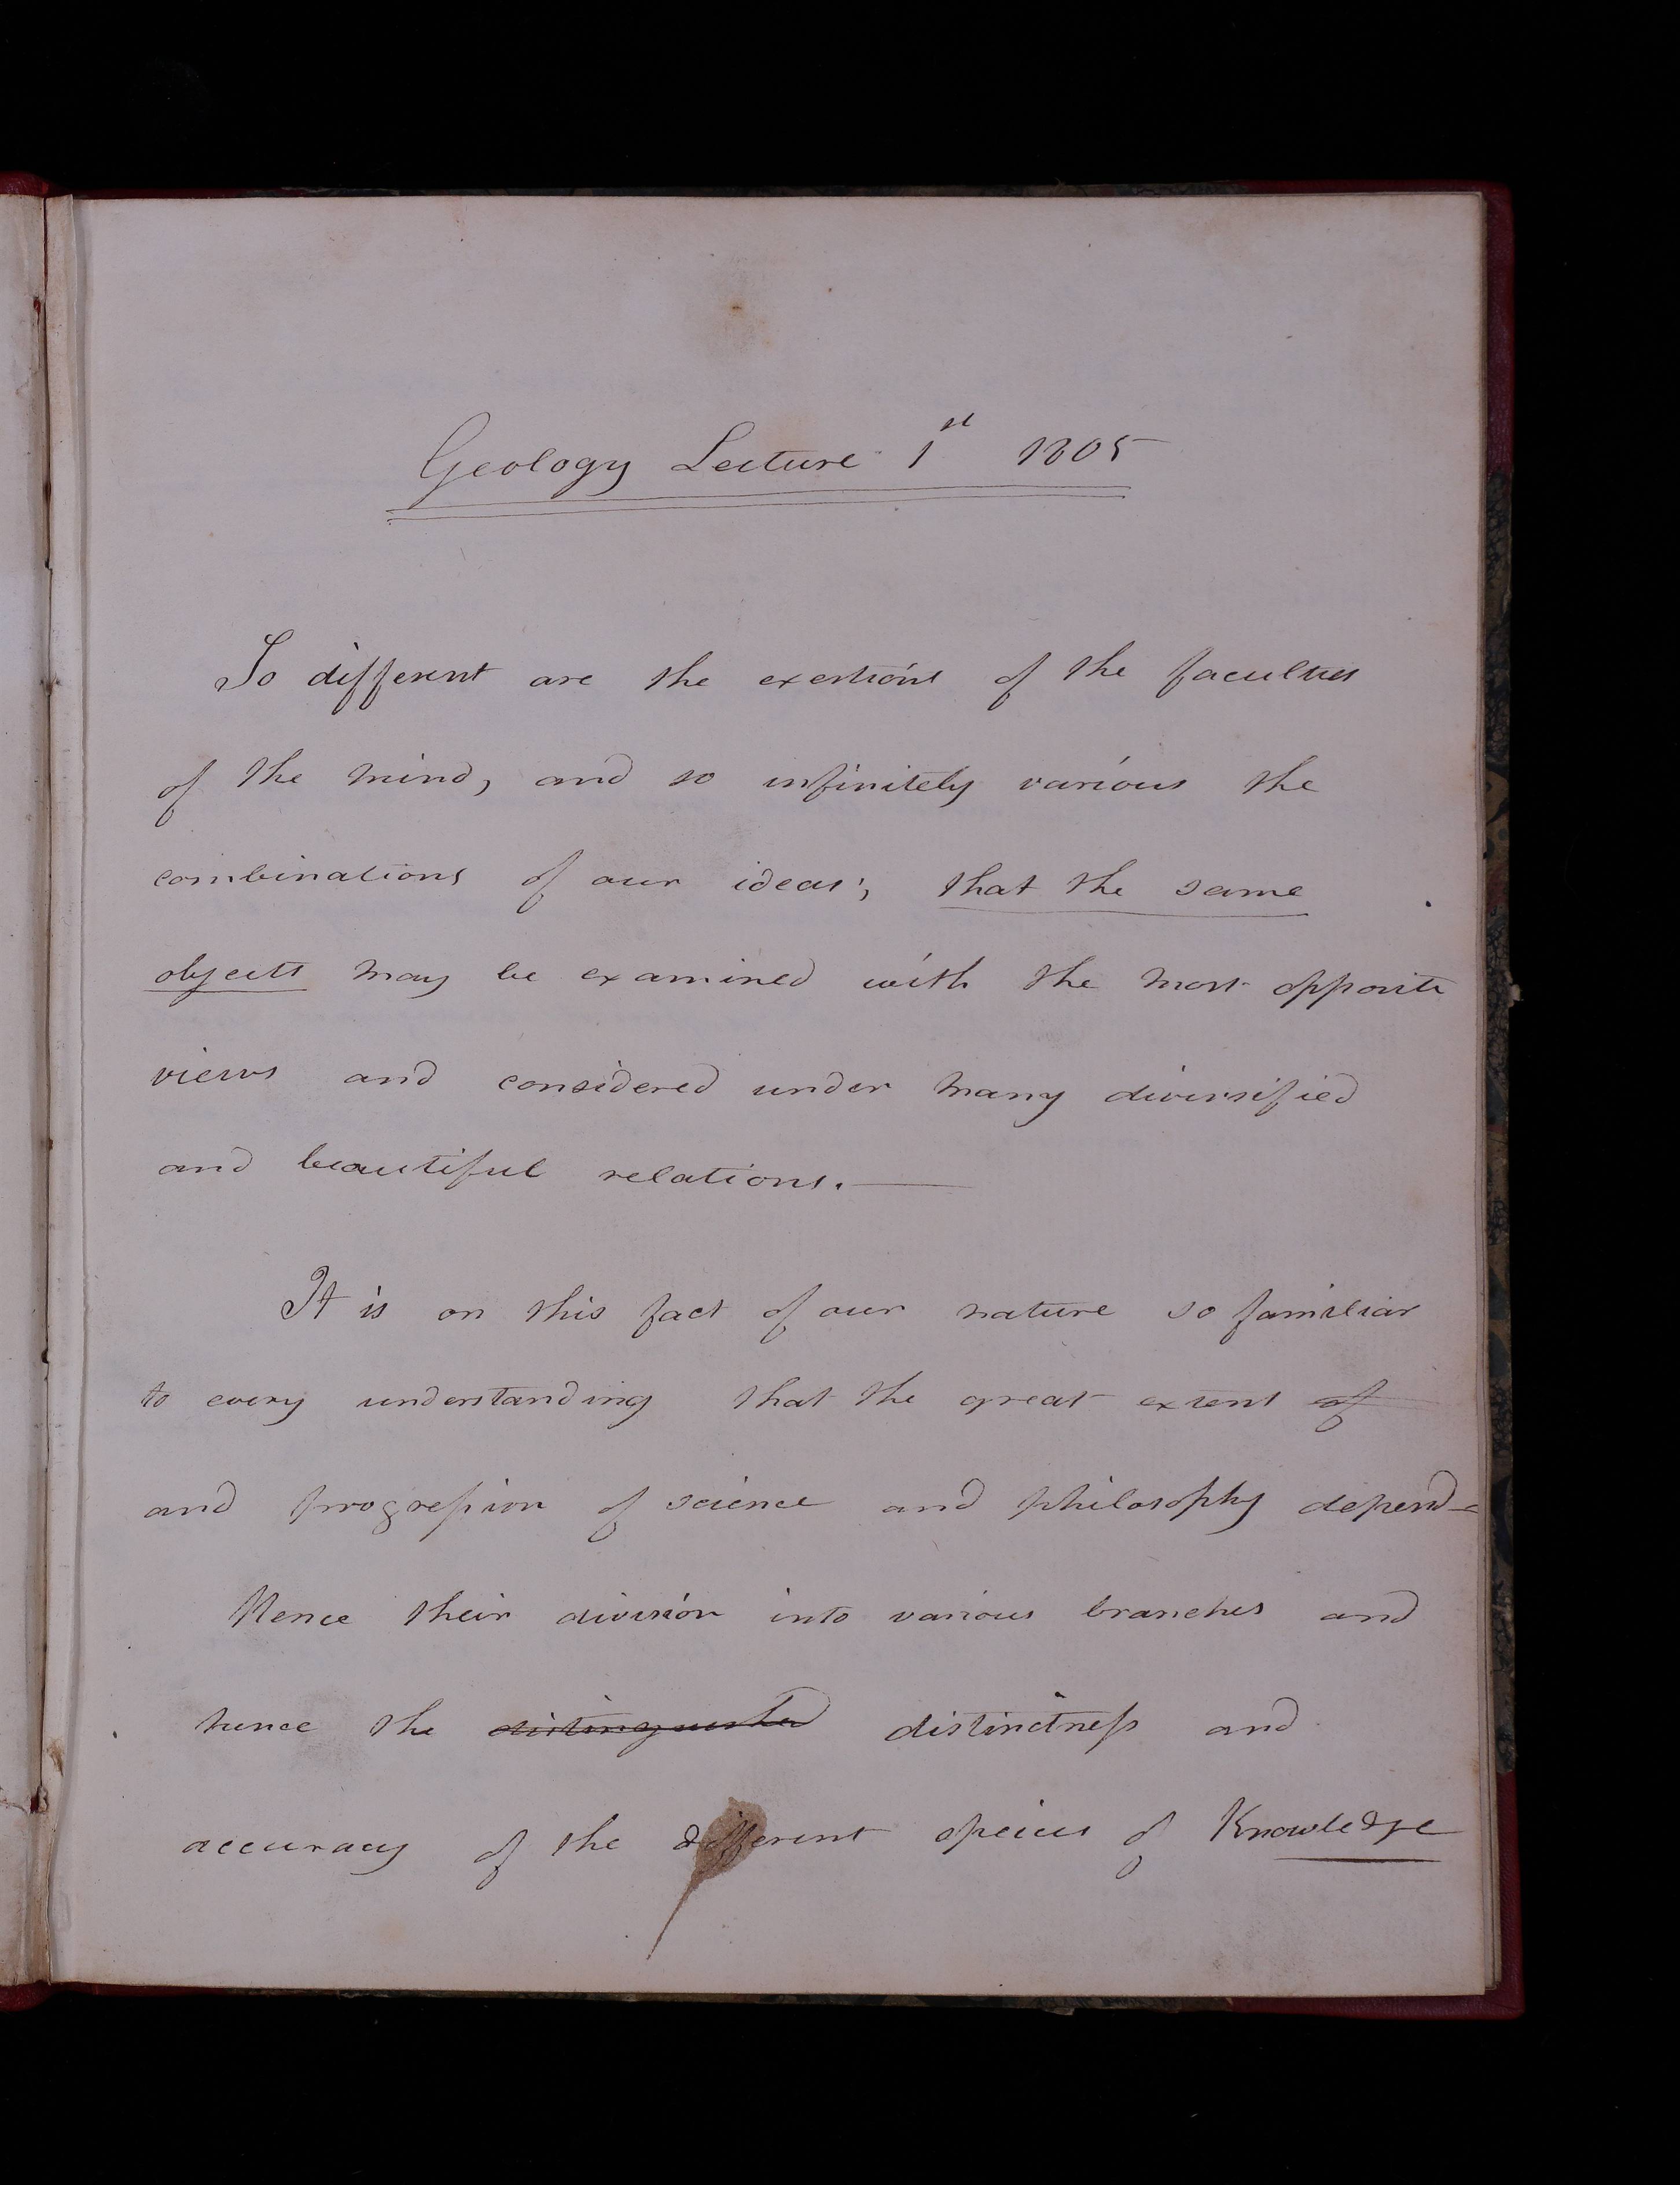 Geology Lecture 1st 1805
So different are the exertions of the faculties
of the mind, and so infinitely various the
combinations of our ideas; that the same
objects may be examined with the most opposite
views and considered under many diversified
and beautiful relations.—
It is on this fact of our nature so familiar
to every understanding that the great extent of
and progression of science and philosophy depend—
Hence their division into various branches and
hence the distinguished distinctness and
accuracy of the different species of Knowledge